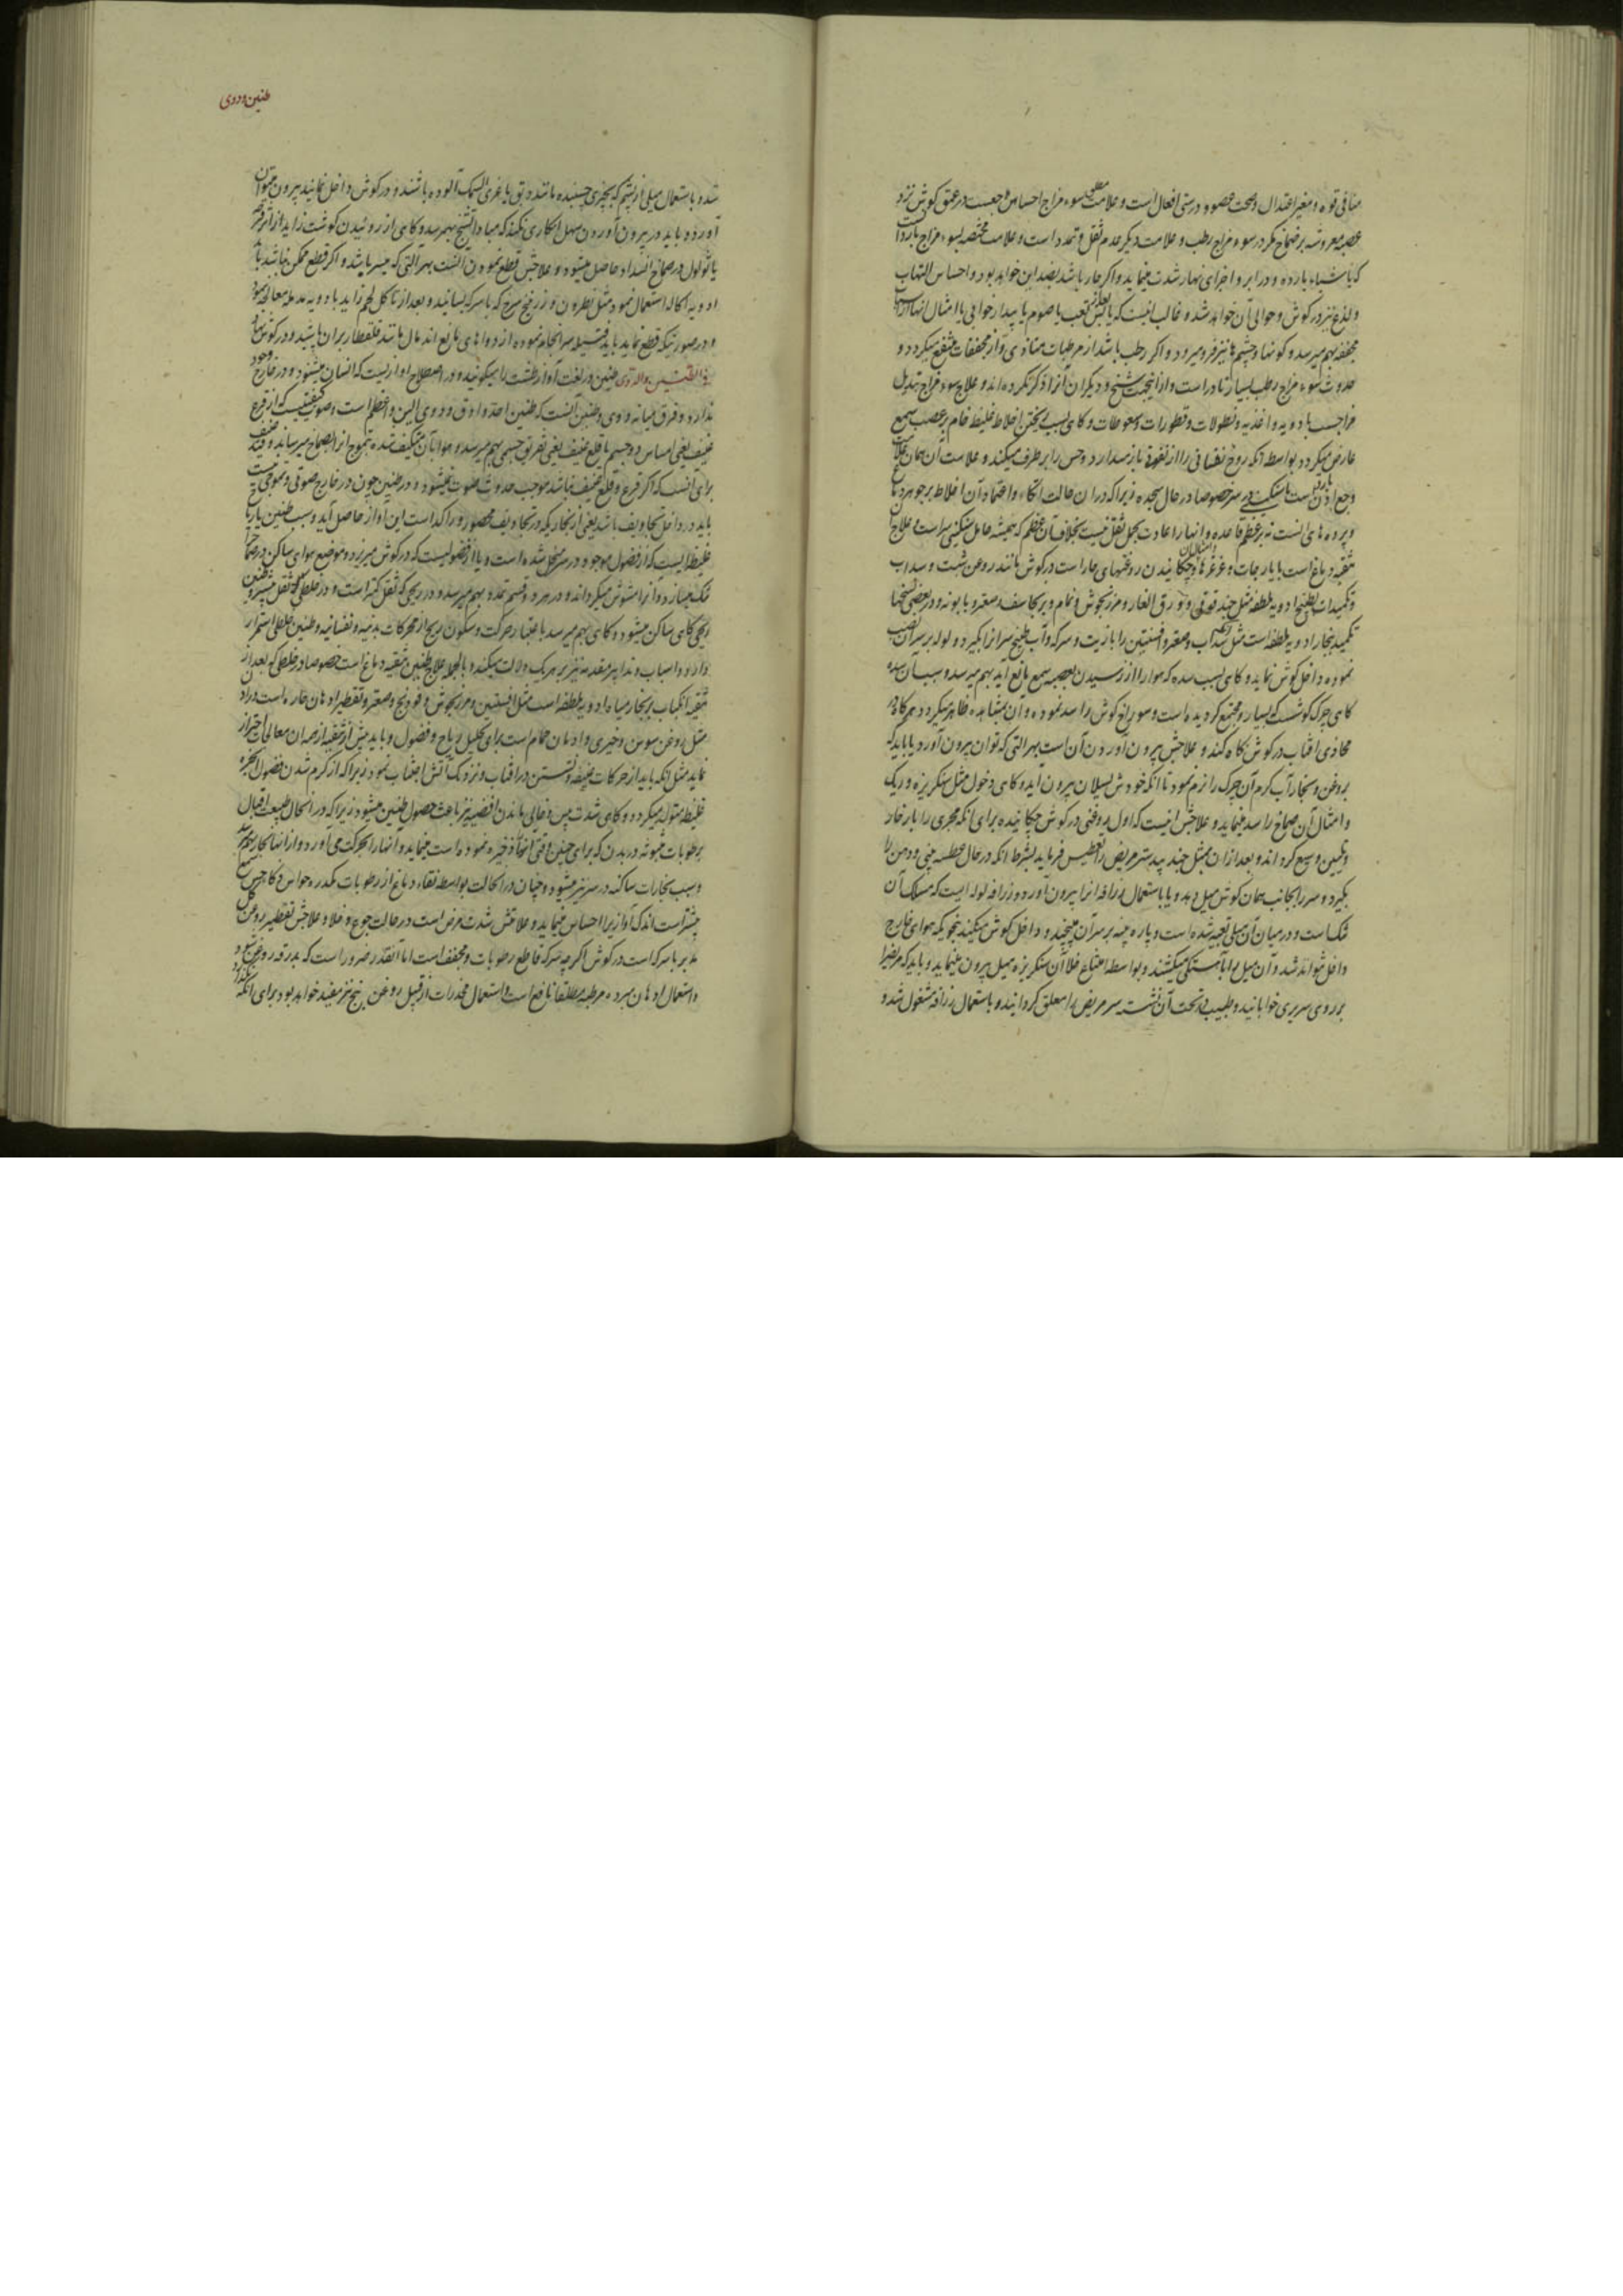 منافی قوه و مغیر اعتدال و صحت عضو و درستی افعال است و علامت مطلق سوء مزاج احساس وجعست در عمق گوش نزد
عصبه مفروشه بر صماخ مگر در سوء مزاج رطب و علامت دیگر عدم ثقل و تمدد است و علامت مختصه بسوء مزاج بارد آنست
که باشیاء بارده و در ابر و اجزای نهار شدت مینماید و اگر حار باشد بضد این خواهد بود و احساس التهاب
و لذع نیز در کوش و حوالی آن خواهد شد و غالب انیست که یابس بعد تعب یا صوم یا بیدار خوابی یا امثال انها از
مجففه بهم میرسد و کونها و چشم ها نیز فرو میرود و اگر رطب باشد از مرطبات متاذی و از مجففات منتفع میکردد و
حدوث سوء مزاج رطب بسیار نادر است و از اینجهت شیخ و دیگران آنرا ذکر نکرده اند و علاج سوء مزاج تبدیل
مزاجست بادویه و اغذیه و نطولات و قطورات و سعوطات و کاهی بسبب ریختن اخلاط غلیظ خام بر عصب سمع
عارض میکردد بواسطه آنکه روح نفسانی را از نفوذ باز میدارد و حس را بر طرف میکند و علامت آن همان علامت
وجع اذن است با سنکینی سر خصوصا در حال سجده زیرا که در ان حالت اتکاء و اعتماد آن اخلاط بر جوهر دماغ
و پرده های انست نه بر عظم قاعده و انها را عادت بحمل ثقل نیست بخلاف آن عظم که همیشه حامل سنکینی سر است و علاج
تنقیه دماغ است با یارجات و غرغرها و چکانیدن روغنهای حار است در کوش مانند روغن شبت و سداب
و تکمیدات بطبیخ ادویه ملطفه مثل جند قوقی و ورق الغار و مرزنجوش و نمام و برنجاسف و صعتر و بابونه و در بعضی نسخها
تکمید ببخار ادویه ملطفه است مثل سداب و صعتر و افسنتین را با زیت و سرکه و آب طبخ سر انرا بکیرد و لوله بر سر آن نصب
نموده داخل کوش نماید و کاهی بسبب سده که هوا را از رسیدن بعصبه سمع مانع آید بهم میرسد و سبب آن سده
کاهی چرک گوشست که بسیار و مجتمع کردیده است و سوراخ کوش را سد نموده و ان بمشاهده ظاهر میکردد هرکاه در
محاذی افتاب در کوش نکاه کنند و علاجش بیرون آوردن آن است بهر التی که توان بیرون آورد یا باید که
بروغن و ببخار آب کرم آن چرک را نرم نمود تا انکه خودش بسیلان بیرون اید و کاهی دخول مثل سنکریزه و ریک
و امثال آن صماخ را سد مینماید و علاجش انیست که اول روغنی در کوش چکانیده برای انکه مجری را بازخار
و تلیین وسیع کرداند و بعد از ان بمثل جند بیدستر مریض را تعطیس فرماید بشرط انکه در حال عطسه بینی و دهن را
بکیرد و سر را بجانب همان کوش میل بدهد و یا باستعمال زراقه انرا بیرون آورد و زراقه لوله ایست که مسلک آن
تنک است و در میان آن میلی تعبیه شده است و پاره پنبه بر سر آن میپیچند و داخل کوش میکنند بنحویکه هوای خارج
داخل نتواند شد و آن میل را باهستکی میکشند و بواسطه امتناع خلا آن سنکریزه بمیل بیرون مینماید و باید که مریض را
بر روی سریری خوابانید و طبیب در تحت آن نشسته سر مریض را معلق کردانیده و باستعمال زراقه مشغول شد و
طنین و دوی
شد و باستعمال میلی از پشم که بچیزی چسبنده مانند دبق یا غری السمک آلوده باشند و در کوش داخل نمایند بیرون میتوان
آورد و باید در بیرون آوردن سهل انکاری نکند که مبادا تشنج بهم رسد و کاهی از روئیدن کوشت زاید از اثر قرحه
یا ثولول در صماخ انسداد حاصل میشود و علاجش قطع نمودن آنست بهر آلتی که میسر باشد و اگر قطع ممکن نباشد با
ادویه اکاله استعمال نمود مثل نطرون و زرنیخ سرخ که با سرکه بسایند و بعد از تاکل لحم زاید بادویه مدمله معالجه نمود
و در صورتیکه قطع نماید باید فتیله سرانجام نموده از دواهای مانع اندمال مانند قلقطار بران پاشید و در کوش نهاد
فی الطنین والدوی طنین در لغت آواز طشت را میکویند و در اصطلاح اوازیست که انسان میشنود و در خارج وجود
ندارد و فرق میانه دوی و طنین آنست که طنین احد و ادق و دوی الین و اعظم است و صوت کیفیتیست که از قرع
عنیف یعنی امساس دو جسم یا قلع عنیف یعنی تفریق جسمی بهم میرسد و هوا بآن متکیف شده بتموج انرا بصماخ میرساند و قید عنیف
برای آنست که اگر قرع و قلع عنیف نباشد موجب حدوث صوت نمیشود و در طنین چون در خارج صوتی و تموجی نیست
باید در داخل تجاویف باشد یعنی از بخاریکه در تجاویف محصور و راکد است این آواز حاصل آید و سبب طنین یا ریاح
غلیظ ایست که از فضول موجود در سر متحلل شده است و یا از فضولیست که در کوش میریزد و موضع هوای ساکن در صماخ را
تنک میسازد و انرا مشوش میکرداند و در هر دو قسم تمدد بهم میرسد و در ریحی که ثقل کمتر است و در خلطی که ثقل بیشتر و طنین
ریحی کاهی ساکن میشود و کاهی بهم میرسد باعتبار حرکت و سکون ریح از محرکات بدنیه و نفسانیه و طنین خلطی استمرار
دارد و اسباب و تدابیر متقدمه نیز بر هر یک دلالت میکنند و بالجمله علاج طنین تنقیه دماغ است خصوصا در خلطی که بعد از
تنقیه انکباب بر بخار میاه ادویه ملطفه است مثل افسنتین و مرزنجوش و فودنج و صعتر و تقطیر ادهان حاره است در اذن
مثل روغن سوسن و خیری و ادمان حمام است برای تحلیل ریاح و فضول و باید پیش از تنقیه از همه ان معالجات احتراز
نماید مثل انکه باید از حرکات عنیفه و نشستن در افتاب و نزدیک آتش اجتناب نمود زیرا که از کرم شدن فضول ابخره
غلیظه متولد میکردد و کاهی شدت یبس و خالی ماندن اغذیه نیز باعث حصول طنین میشود زیرا که در انحال طبیعت اقبال
برطوبات مبثوثه در بدن که برای چنین وقتی انها را ذخیره نموده است مینماید و آنها را بحرکت می آورد و از انها بخار بهم میرسد
و سبب بخارات ساکنه در سر نیز میشود و چنان در انحالت بواسطه نقاء دماغ از رطوبات مکدره حواس ذکاء حس سمع
بیشتر است اندک آوازی را احساس مینماید و علامتش شدت مرض است در حالت جوع و خلا و علاجش تقطیر روغن گل
مدبر با سرکه است در کوش اگر چه سرکه قاطع رطوبات و مجفف است اما آنقدر ضرور است که بدرقه روغن شود
و استعمال ادهان مبرده مرطبه مطلقا نافع است و استعمال مخدرات از قبیل روغن بنج نیز مفید خواهد بود برای انکه